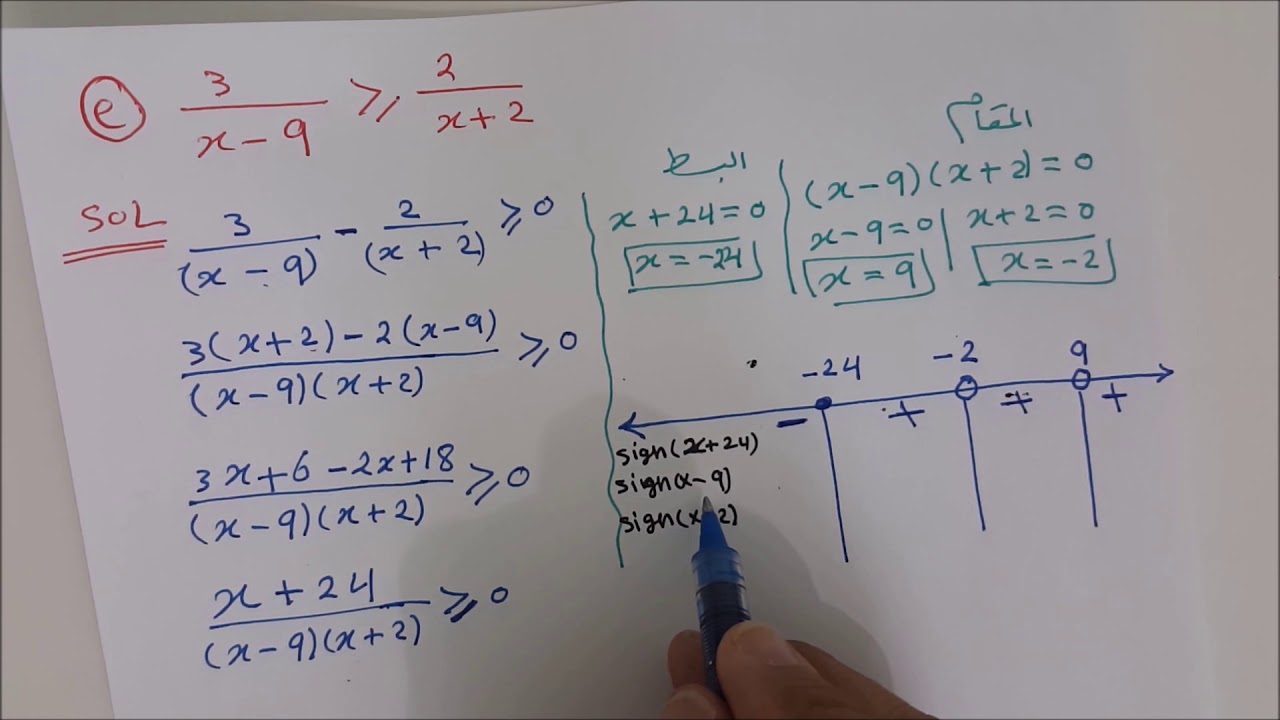 e 3/(x-9) ≥ 2/(x+2)
SOL
3/(x-9) - 2/(x+2) ≥ 0
3(x+2)-2(x-9)/(x-9)(x+2) ≥ 0
3x+6-2x+18/(x-9)(x+2) ≥ 0
x+24/(x-9)(x+2) ≥ 0
البسط
x+24=0
x=-24
المقام
(x-9)(x+2)=0
x-9=0
x=9
x+2=0
x=-2
-24 -2 9
- + + +
sign(x+24)
sign(x-9)
sign(x 2)